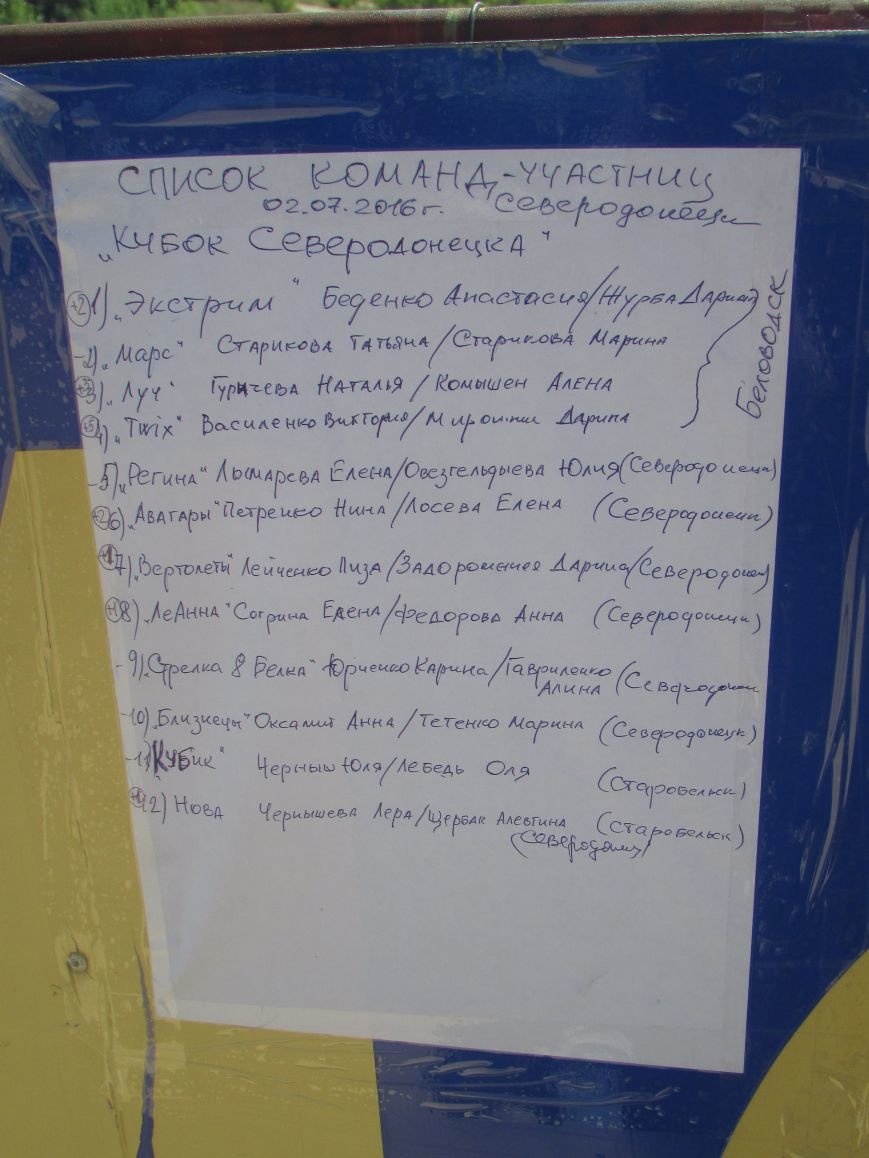 СПИСОК КОМАНД-УЧАСТНИЦ
02.07.2016г. Северодонецк
„Кубок Северодонецка"
+2 1) „Экстрим" Беденко Анастасия/Журба Дарина
-2) „Марс" Старикова Татьяна/Старикова Марина
3) „Луч" Наталья/Комышен Алена
+5 4) „Twix" Василенко Виктория/ Дарина
Беловодск
-5) „Регина" Лымарева Елена/Овезгельдыева Юлия (Северодонецк)
+2 6) „Аватары" Петренко Нина/Лосева Елена (Северодонецк)
+1 7) „Вертолеты" Лейченко Лиза/Задорожняя Дарина/(Северодонецк)
+1 8) „ЛеАнна" Согрина Елена/Федорова Анна (Северодонецк)
-9) „Стрелка & Белка" Юрченко Карина/Гавриленко
Алина (Северодонецк
-10) „Близнецы" Оксамит Анна/Тетенко Марина (Северодонецк)
-11) „Кубик" Черныш Юля/Лебедь Оля (Старобельск)
12) Нова Чернышева Лера/Щербак Алевтина (Старобельск)
(Северодонецк)